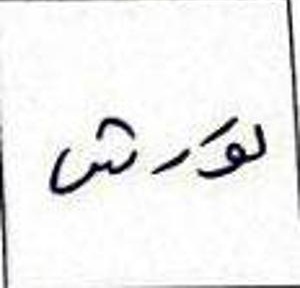 لورش